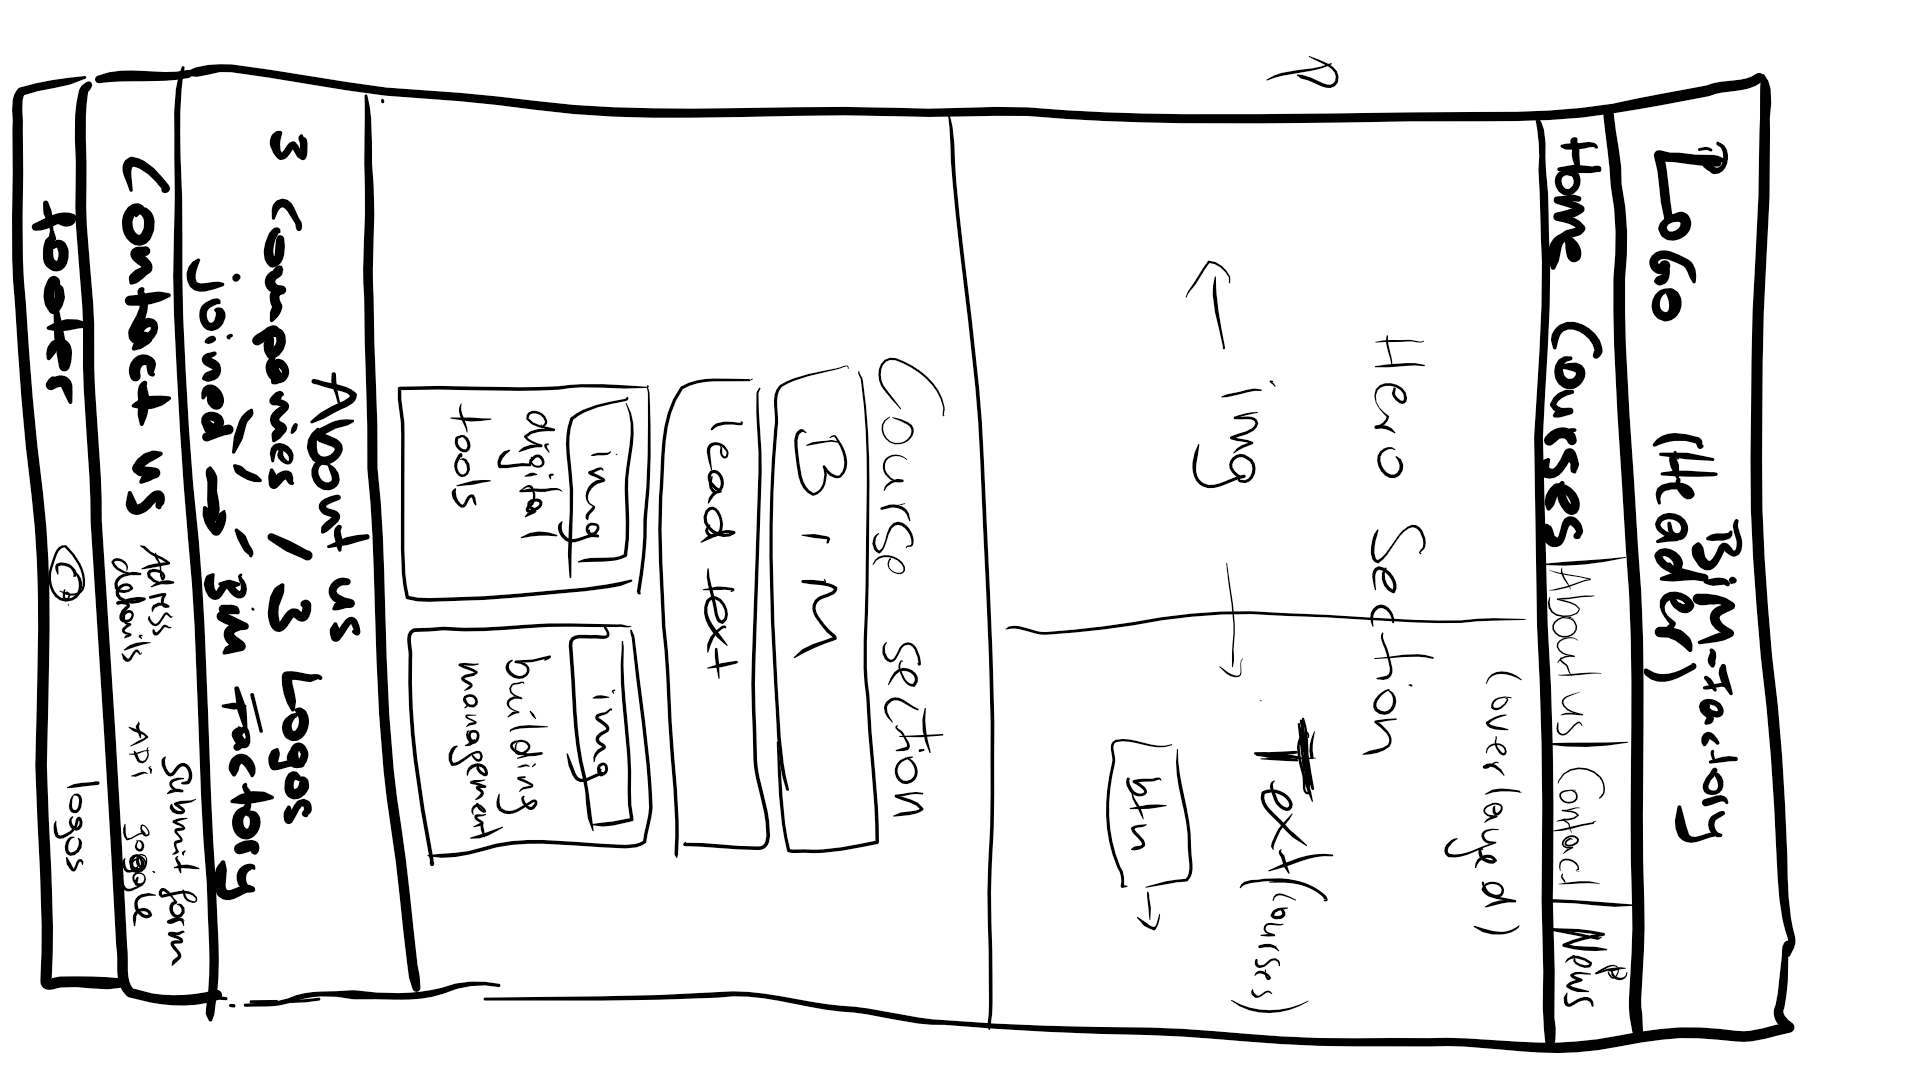 Logo (Header)
BiM-Factory
Home Courses About us Contact News
(overlayed)
Hero Section
← img → Text (Courses)
btn →
Course section
BIM
lead text
img
digital
tools
img
building
management
About us
3 Companies / 3 Logos
joined → Bim Factory
Contact us
Adress
details
Submit form
API google
footer © logos